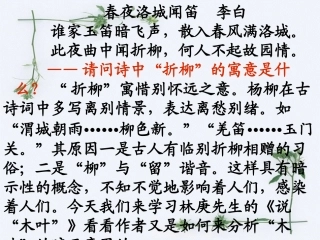 春夜洛城闻笛　李白
谁家玉笛暗飞声，散入春风满洛城。
此夜曲中闻折柳，何人不起故园情。
—— 请问诗中“折柳”的寓意是什
么？ “折柳”寓惜别怀远之意。杨柳在古
诗词中多写离别情景，表达离愁别绪。如
“渭城朝雨••••••柳色新。” “羌笛•••••••玉门
关。”其原因一是古人有临别折柳相赠的习
俗；二是“柳”与“留”谐音。这样具有暗
示性的概念，不知不觉地影响着人们，感染
着人们。今天我们来学习林庚先生的《说
“木叶”》看看作者又是如何来分析“木